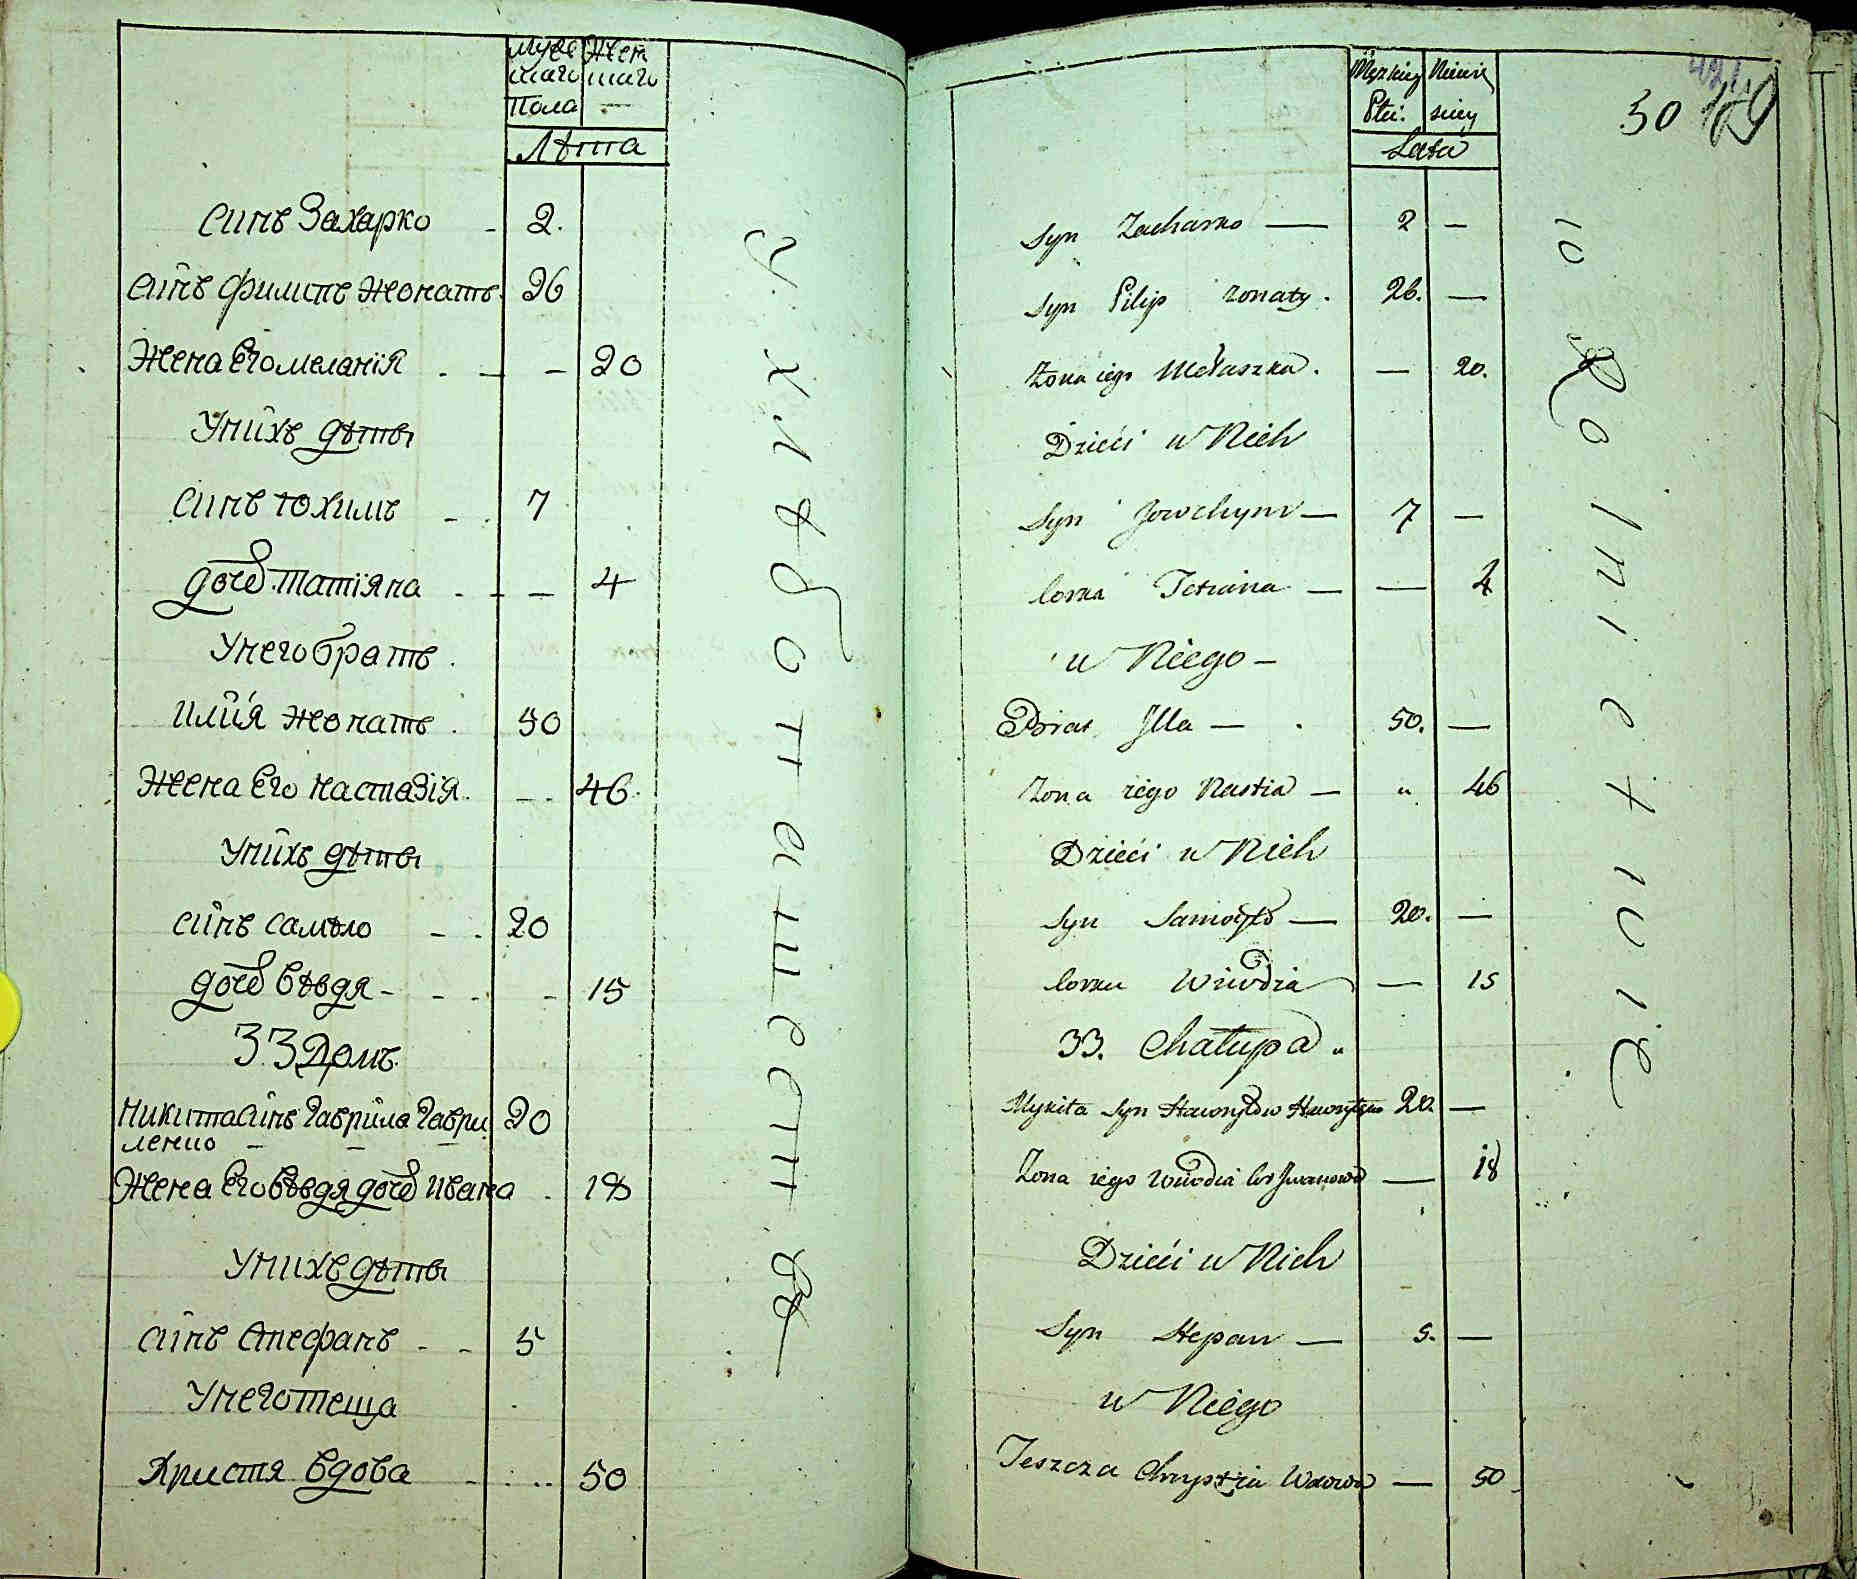 Муже Жен
скаго скаго
Пола —
Лѣта
Синъ Захарко - 2.
Синъ Филипъ жонатъ. 26
Жена Его меланія . - - 20
Унихъ дѣты
Синъ Юхимъ - . 7
дочь Татіяна - - - 4
Унего братъ .
Илия жонатъ . 50
Жена Его настазія. - . 46.
Унихъ дѣты
Синъ самѣло - . 20
дочь Евдя - - - - 15
33 Домъ.
Никита Синъ Гаврила Гаври 20
ленко - - -
Жена Его Евдя дочь Ивана . 18
Унихъ дѣты
Синъ Стефанъ - - 5
Унего теща
Христя вдова - . .. 50
У хлѣботишествѣ
Męzkiey Niewie
Płci. sciey
Lata
50
Syn Zacharko — 2 —
Syn Pilip zonaty . 26. —
Zona iego Mełaszka . — 20.
Dzieći u Nich
Syn Jowchym — 7 —
Corka Tetiana — — 4
u Niego —
Brat Jlla — . 50. —
Zona iego Nastia — " 46
Dzieći u Nich
Syn Samoyło — 20. —
Corka Wiwdia — 15
33. Chałupa "
Mykita Syn Hawryłow Hawryłenko 20. —
Zona iego Wiwdia Cor Jwanowa — 18
Dzieći u Nich
Syn Stepan — 5. —
u Niego
Teszcza Chrystia Wdowa — 50
w Rolnictwie